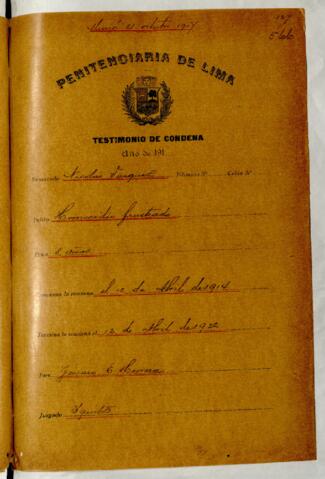 Murió 21 octubre 1917
127
PENITENCIARIA DE LIMA
TESTIMONIO DE CONDENA
Año de 191
Nicolas Filiación Nº Celda Nº
Delito Homicidio frustrado
Pena 8 años
Comienza la condena el 12 de Abril de 1914
Termina la condena el 12 de Abril de 1922
Juez Genaro E Herrera
Juzgado Iquitos